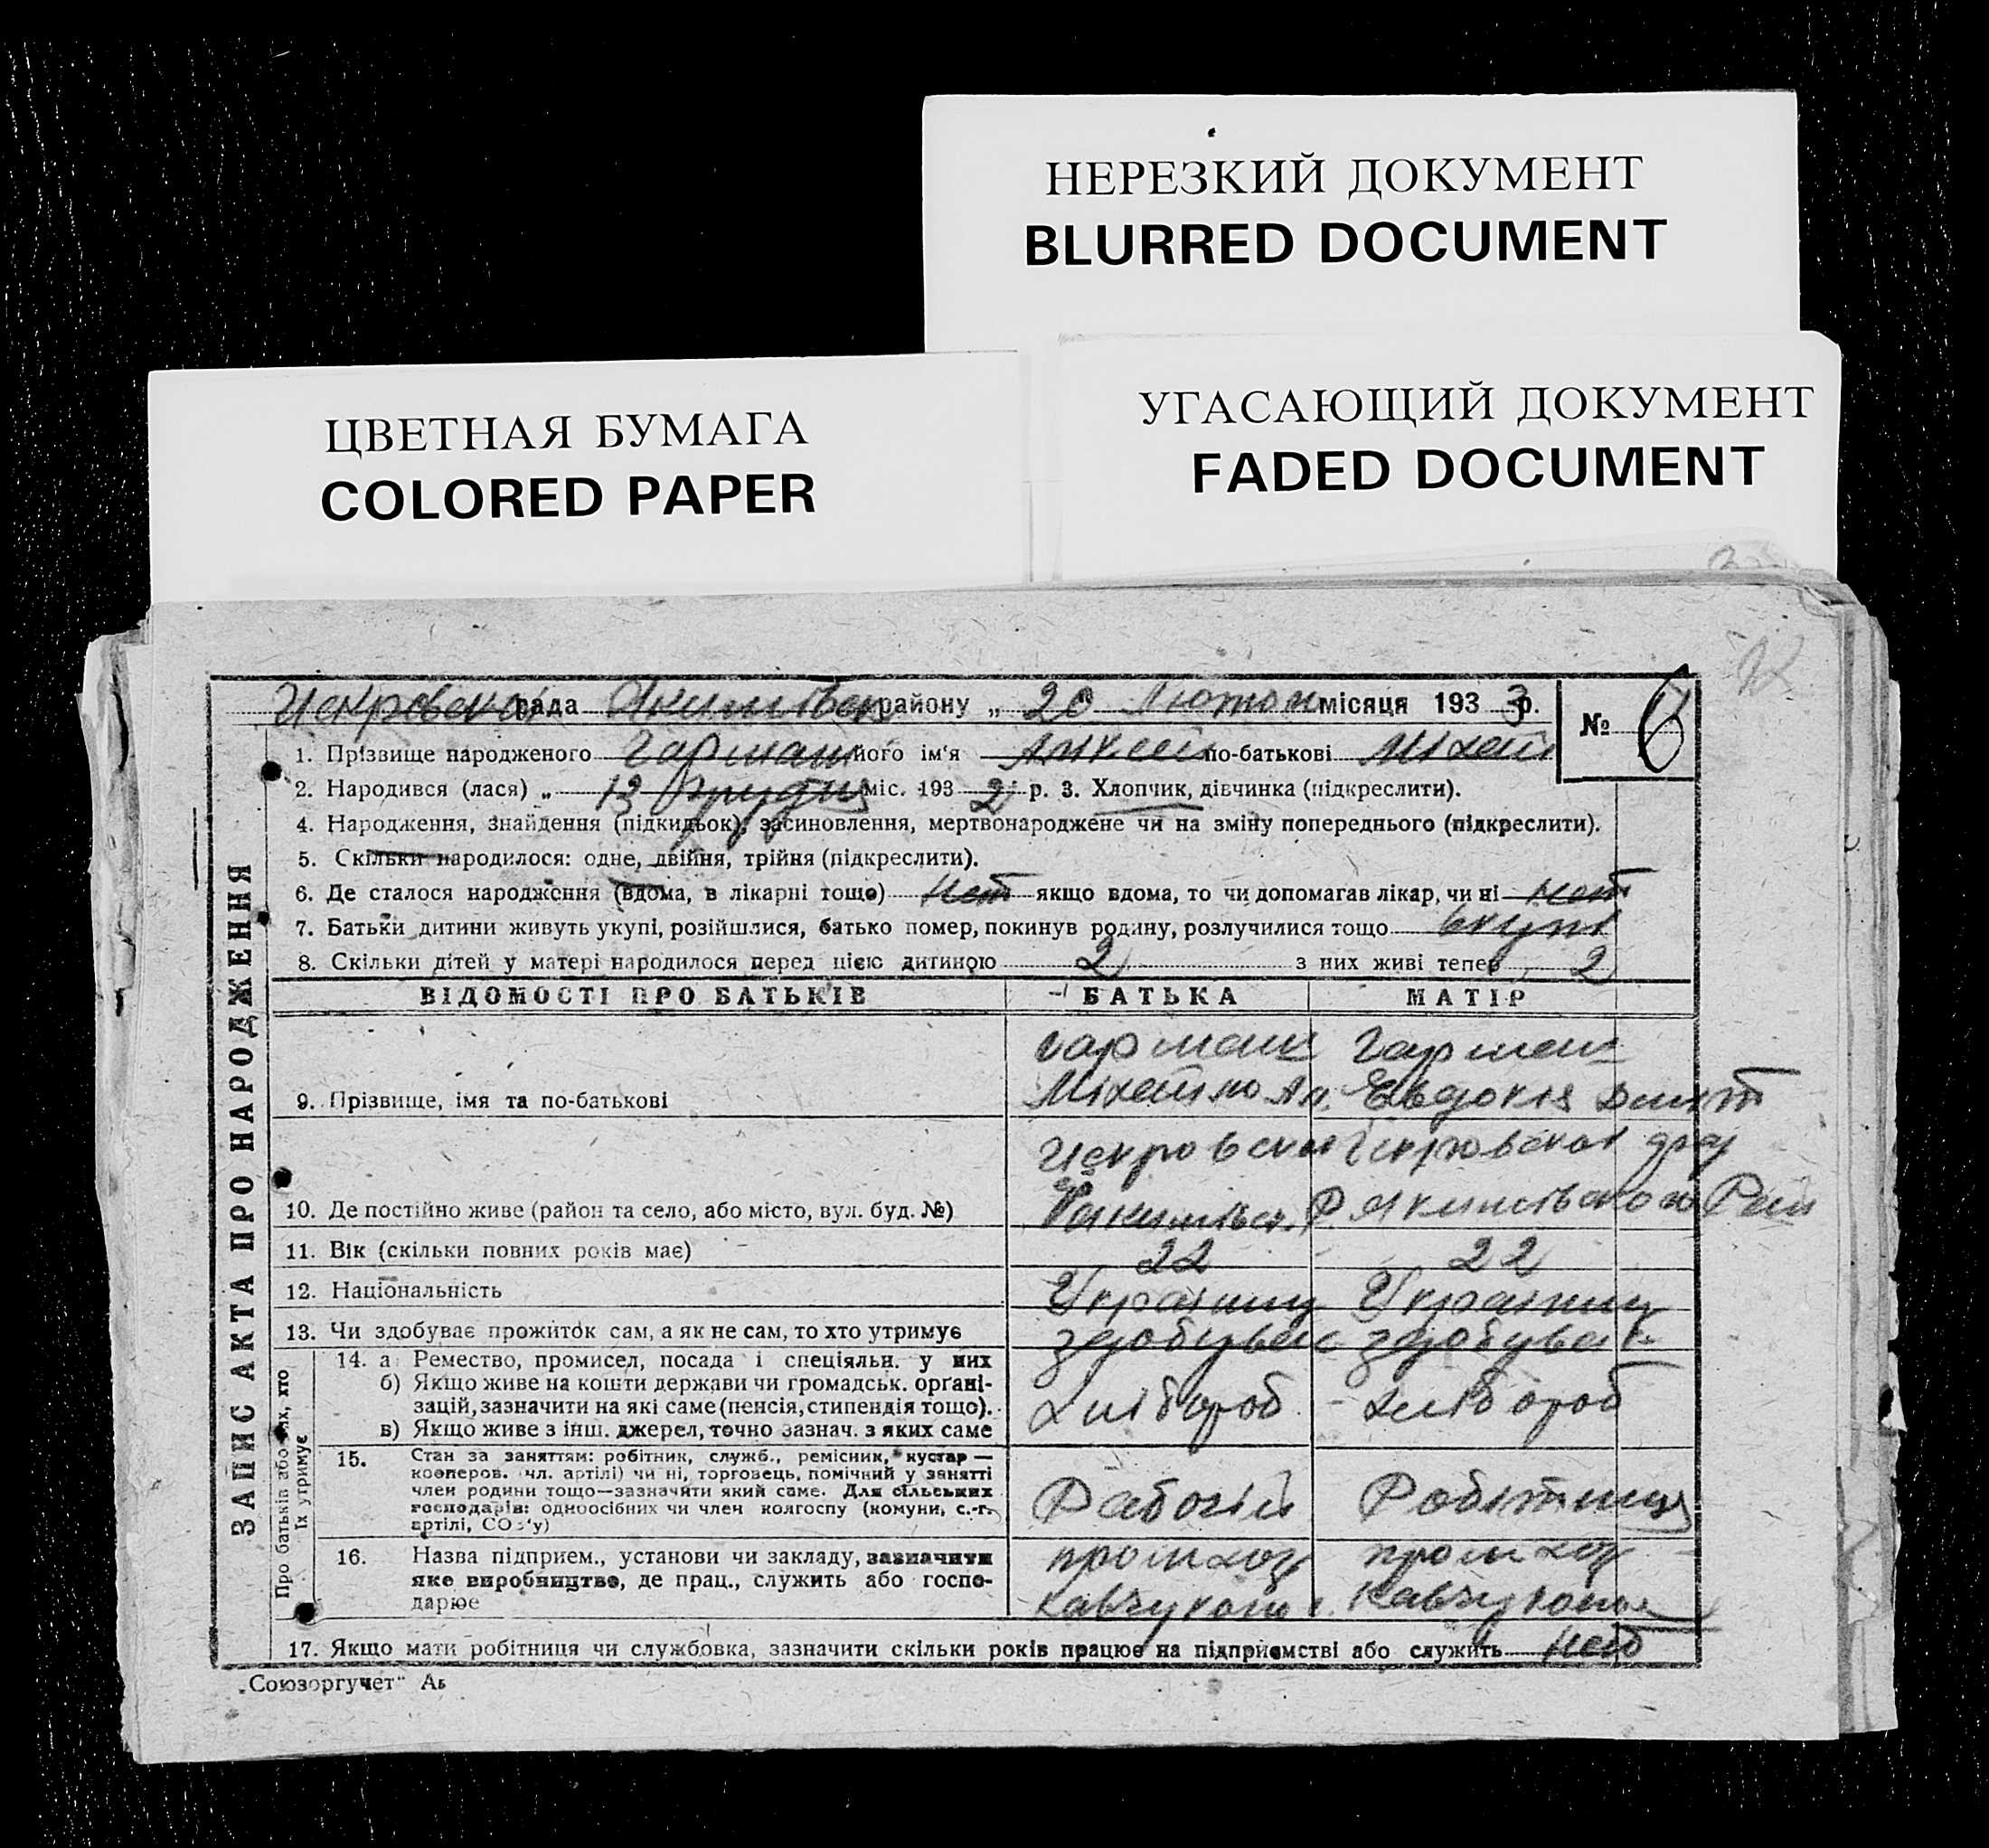 НЕРЕЗКИЙ ДОКУМЕНТ
BLURRED DOCUMENT
ЦВЕТНАЯ БУМАГА
COLORED PAPER
УГАСАЮЩИЙ ДОКУМЕНТ
FADED DOCUMENT
ЗАПИС АКТА ПРО НАРОДЖЕННЯ
рада району „ 20 Лютом місяця 193 3 р. № 6
1. Прізвище народженого Гармаш його ім‘я по-батькові Міхайл
2. Народився (лася) „ 13 Грудня міс. 193 2 р. 3. Хлопчик, дівчинка (підкреслити).
4. Народження, знайдення (підкидьок), засиновлення, мертвонароджене чи на зміну попереднього (підкреслити).
5. Скільки народилося: одне, двійня, трійня (підкреслити).
6. Де сталося народження (вдома, в лікарні тощо) нет якщо вдома, то чи допомагав лікар, чи ні нет
7. Батьки дитини живуть укупі, розійшлися, батько помер, покинув родину, розлучилися тощо вкупі
8. Скільки дітей у матері народилося перед цією дитиною 2 з них живі тепер 2
ВІДОМОСТІ ПРО БАТЬКІВ БАТЬКА МАТІР
Гармаш Гармаш
9. Прізвище, імя та по-батькові Міхайло Ап. Евдокія Дмит
Искровская Искровская
10. Де постійно живе (район та село, або місто, вул. буд. №) Якимівск. Р. Якимівского Рай
11. Вік (скільки повних років має) 22 22
12. Національність Украинец Украинец
13. Чи здобуває прожиток сам, а як не сам, то хто утримує здобуває здобуває
Про батьків або них, хто їх утримує
14. а) Ремество, промисел, посада і спеціяльн. у них
б) Якщо живе на кошти держави чи громадськ. органі-
зацій, зазначити на які саме (пенсія, стипендія тощо). Хлібороб Хлібороб
в) Якщо живе з інш. джерел, точно зазнач. з яких саме
15. Стан за заняттям: робітник, служб., ремісник, кустар —
кооперов. (чл. артілі) чи ні, торговець, помічний у занятті
член родини тощо—зазначити який саме. Для сільських
господарів: одноосібних чи член колгоспу (комуни, с.-г. Рабочій Робітниця
артілі, СОЗ‘у)
16. Назва підприєм., установи чи закладу, зазначити промхоз промхоз
яке виробництво, де прац., служить або госпо-
дарює
17. Якщо мати робітниця чи службовка, зазначити скільки років працює на підприємстві або служить нет
„Союзоргучет“